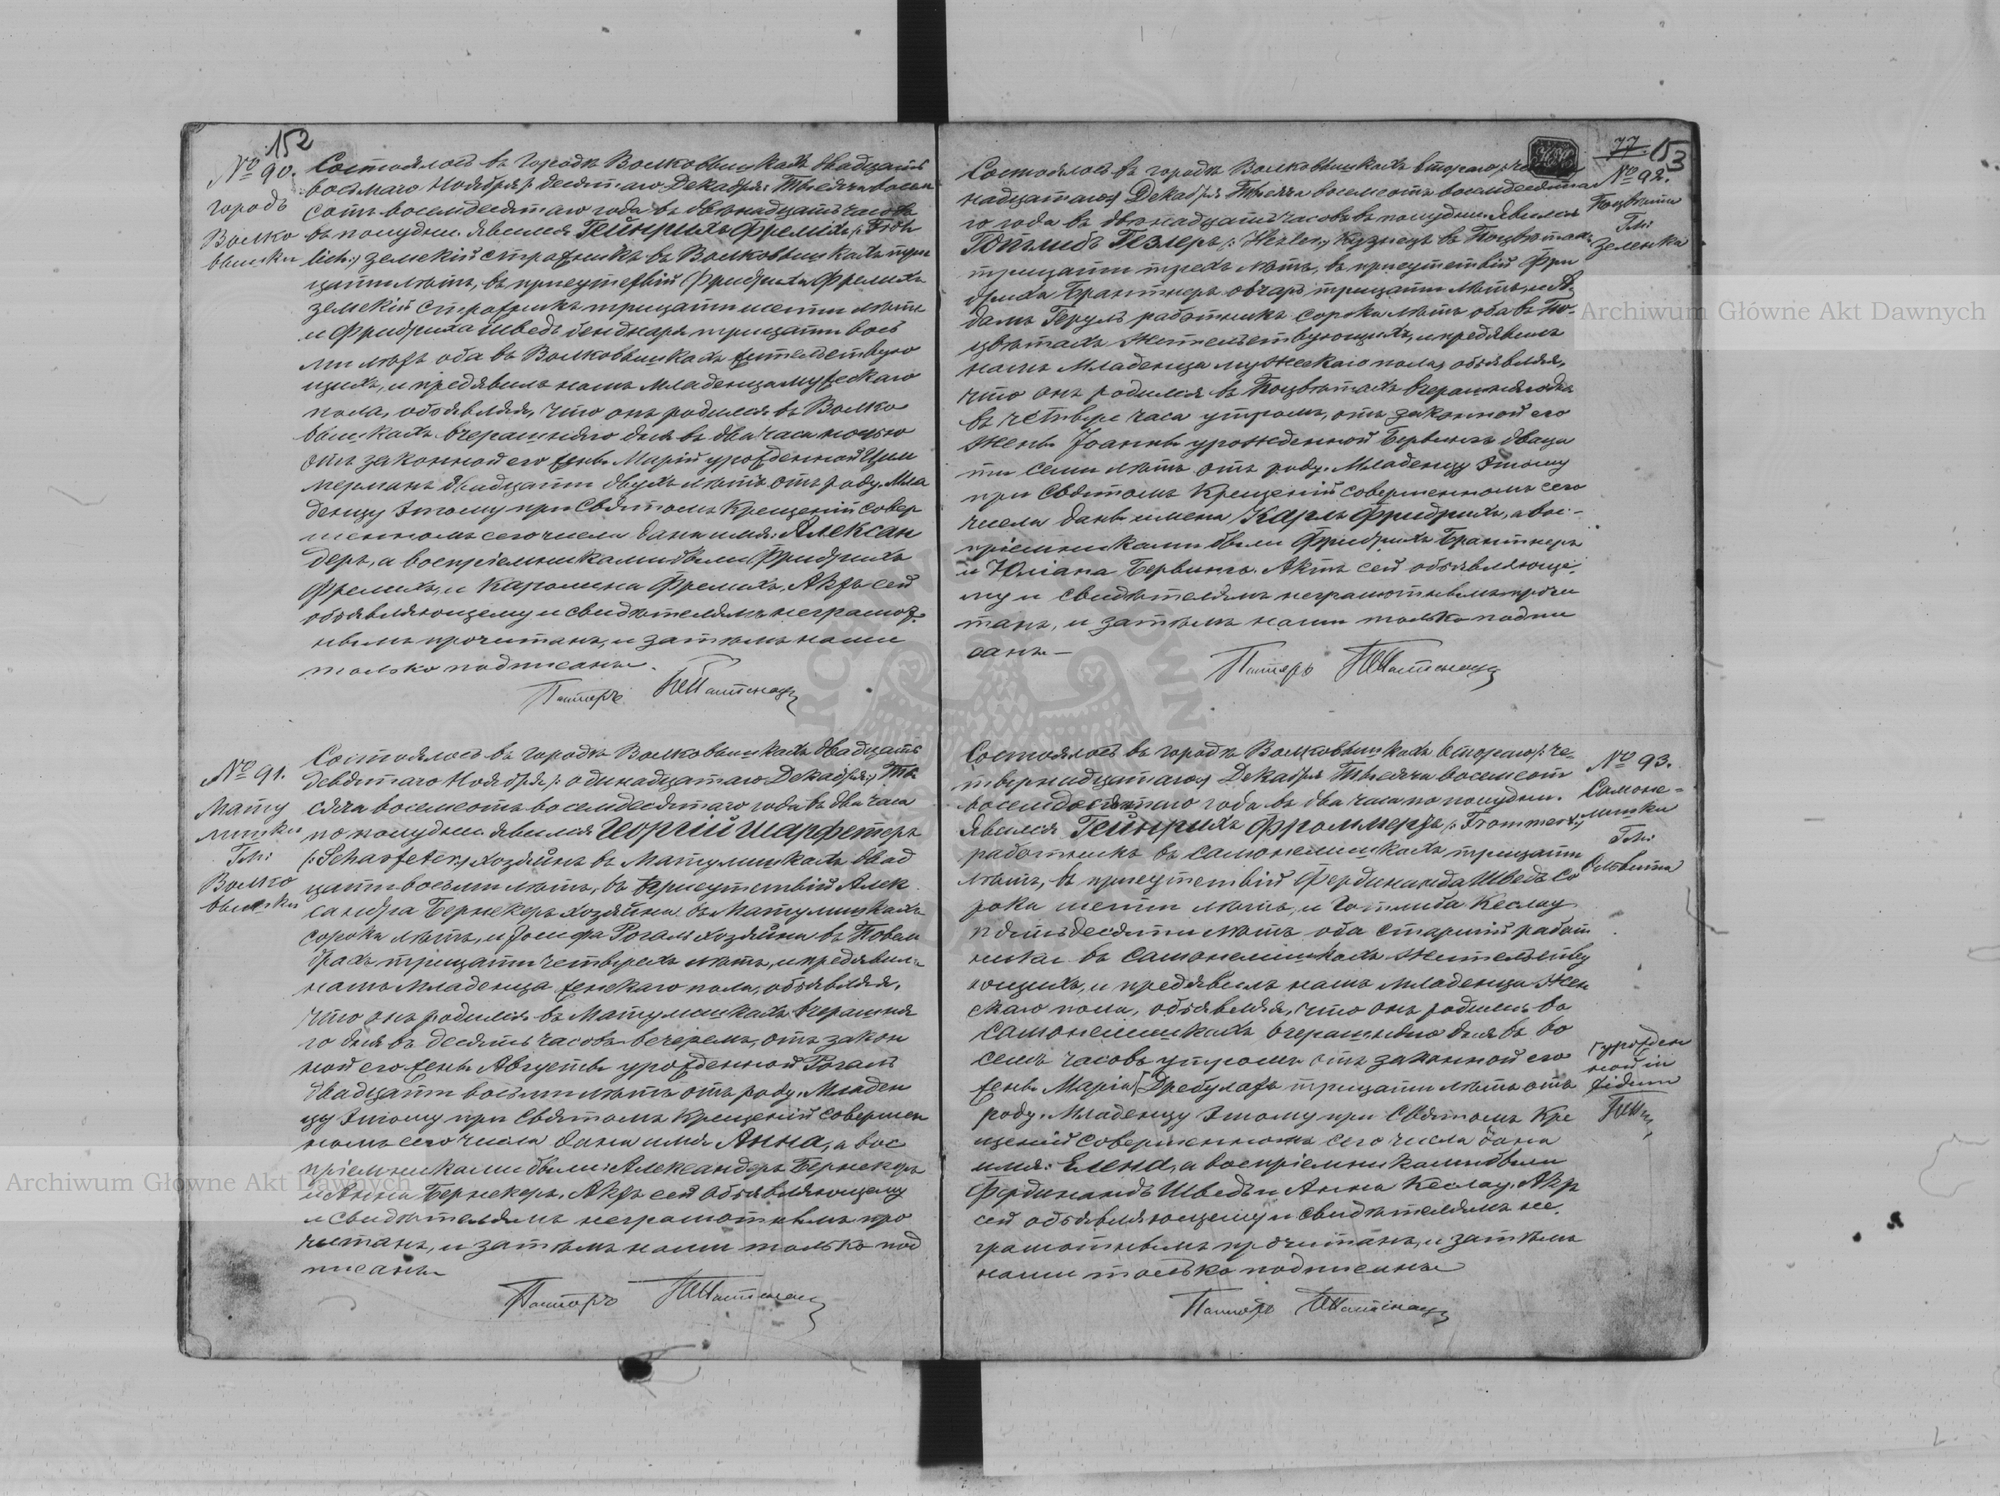 152
№ 90.
городъ
Волко
вышки
Состоялось въ городѣ Волковышкахъ двадцать
восьмаго Ноября /: десятаго Декабря :/ Тысяча восемь
сотъ восемдесятаго года въ двѣнадцать часовъ
въ полудни. Явился Гейнрихъ Фрелихъ /: Fröh
lich :/ земскій стражникъ въ Волковышкахъ трид
цати лѣтъ, въ присутствіи Фридриха Фрелихъ
земскій стражникъ тридцати шести лѣтъ
и Фридриха Шведъ тридцати вось
ми лѣтъ оба въ Волковышкахъ жительствую
щихъ, и предявилъ намъ младенца мужескаго
пола, объявляя, что онъ родился въ Волко
вышкахъ вчерашняго дня въ два часа ночью
отъ законной его жены Маріи урожденной Цим
мерманъ двадцати двухъ лѣтъ отъ роду. Мла
денцу этому при Святомъ Крещеніи совер
шенномъ сего числа дано имя: Алексан
деръ, а воспріемниками были Фридрихъ
Фрелихъ, и Каролина Фрелихъ, Актъ сей
объявляющему и свидѣтелямъ неграмот
нымъ прочитанъ, и затѣмъ нами
только подписанъ.
Пасторъ
№ 91.
Мату
лишки
Гм:
Волко
вышки
Состоялось въ городѣ Волковышкахъ двадцать
девятаго Ноября /: одинадцатаго Декабря :/ Ты
сяча восемсотъ восемдесятаго года въ два часа
по полудни. Явился Георгій Шарфетеръ
/: Scharfeter :/ хозяинъ въ Матулишкахъ двад
цати восьми лѣтъ, въ присутствіи Алек
сандра Бернекеръ хозяина въ Матулишкахъ
сорока лѣтъ, и Іосифа Рогалъ хозяина въ
тридцати четырехъ лѣтъ, и предявилъ
намъ младенца женскаго пола, объявляя,
что онъ родился въ Матулишкахъ вчерашня
го дня въ десять часовъ вечеремъ, отъ закон
ной его жены Августы урожденной Рогалъ
двадцати восьми лѣтъ отъ роду. Младен
цу этому при Святомъ Крещеніи совершен
номъ сего числа дано имя Анна, а вос
пріемниками были: Александеръ Бернекеръ
и Анна Бернекеръ. Актъ сей объявляющему
и свидѣтелямъ неграмотнымъ про
читанъ, и затѣмъ нами только под
писанъ
Пасторъ
77 153
№ 92.
Гм:
Зеленка
Состоялось въ городѣ Волковышкахъ втораго /: че
надцатаго :/ Декабря Тысяча восемсотъ восемдесята
го года въ двѣнадцать часовъ въ полудни. Явился
Готлибъ Гезлеръ /: Hesler :/ кузнецъ въ
тридцати трехъ лѣтъ, въ присутствіи Фри
дриха Брантнеръ овчаръ тридцати лѣтъ, и А
дамъ работникъ сорока лѣтъ оба въ По
цвѣтахъ жительствующихъ, и предявилъ
намъ младенца мужескаго пола, объявляя,
что онъ родился въ Поцвѣтахъ вчерашняго дня
въ четыре часа утромъ, отъ законной его
жены Іоанны урожденной Бервингъ двадца
ти семи лѣтъ отъ роду. Младенцу этому
при Святомъ Крещеніи совершенномъ сего
числа даны имена Карлъ Фридрихъ, а вос-
пріемниками были Фридрихъ Брантнеръ
и Юліана Бервингъ. Актъ сей объявляюще
му и свидѣтелямъ неграмотнымъ прочи
танъ, и затѣмъ нами только подпи
санъ —
Пасторъ
№ 93.
Самоне-
лишки
Гм:
Состоялось въ городѣ Волковышкахъ втораго /: че-
твернадцатаго :/ Декабря Тысяча восемсотъ
восемдесятаго года въ два часа по полудни.
Явился Гейнрихъ Фроммертъ /: Frommert :/
работникъ въ Самонелишкахъ тридцати
лѣтъ, въ присутствіи Фердинанда Шведъ со
рока шести лѣтъ, и Готлиба Кеслау
пятьдесяти лѣтъ оба старшій работ
ники въ Самонелишкахъ жительству
ющихъ, и предявилъ намъ младенца жен
скаго пола, объявляя, что онъ родился въ
Самонелишкахъ вчерашняго дня въ во
семь часовъ утромъ отъ законной его
жены Маріи тридцати лѣтъ отъ
роду. Младенцу этому при Святомъ Кре
щеніи совершенномъ сего числа дано
имя: Елена, а воспріемниками были
Фердинандъ Шведъ и Анна Кеслау. Актъ
сей объявляющему и свидѣтелямъ не
грамотнымъ прочитанъ, и затѣмъ
нами только подписанъ
урожден
ной in
fidem
Пасторъ
Archiwum Główne Akt Dawnych
Archiwum Główne Akt Dawnych